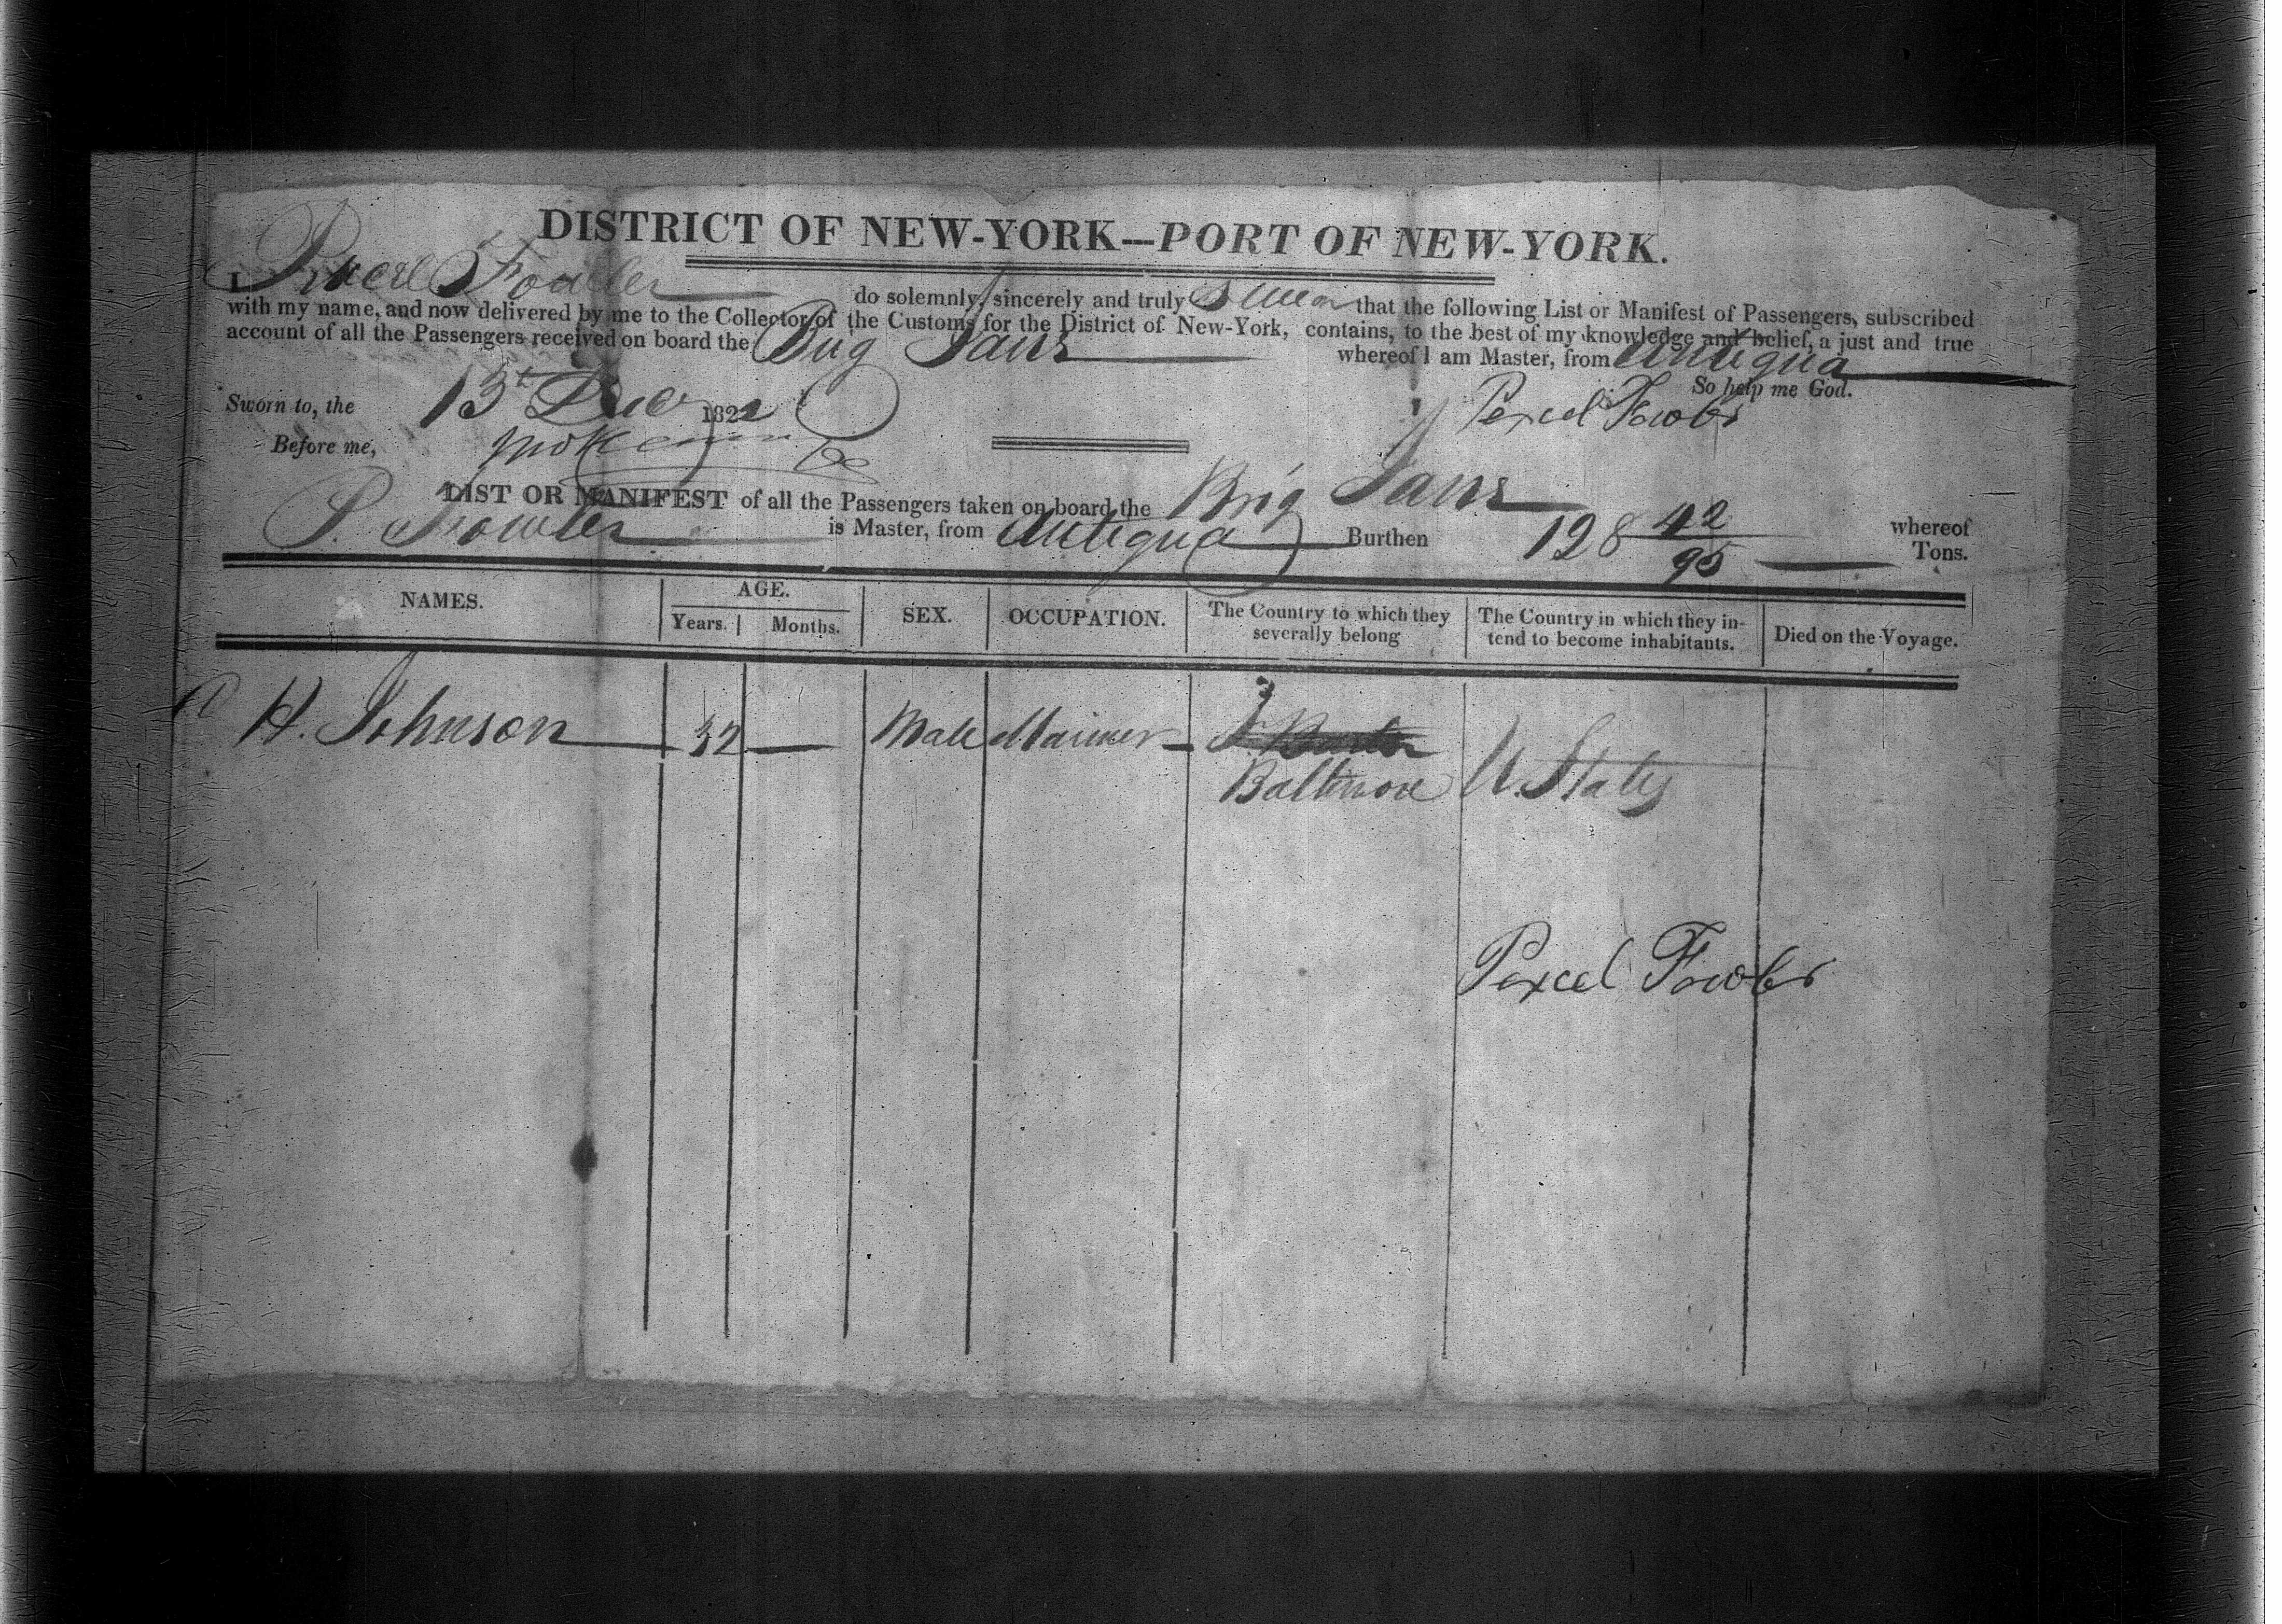 DISTRICT OF NEW-YORK—PORT OF NEW-YORK.
I Fowler do solemnly, sincerely and truly Swear that the following List or Manifest of Passengers, subscribed
with my name, and now delivered by me to the Collector of the Customs for the District of New-York, contains, to the best of my knowledge and belief, a just and true
account of all the Passengers received on board the Brig Jane whereof I am Master, from Antigua
So help me God.
Sworn to, the 13th Decr 1822
Before me,
LIST OR MANIFEST of all the Passengers taken on board the Brig Jane whereof
P. Fowler is Master, from Antigua Burthen 128 42/95 Tons.
NAMES. AGE. SEX. OCCUPATION. The Country to which they severally belong The Country in which they intend to become inhabitants. Died on the Voyage.
Years. Months.
H. Johnson 32 — Male Mariner
Baltimore U. States
Pexcel Fowler